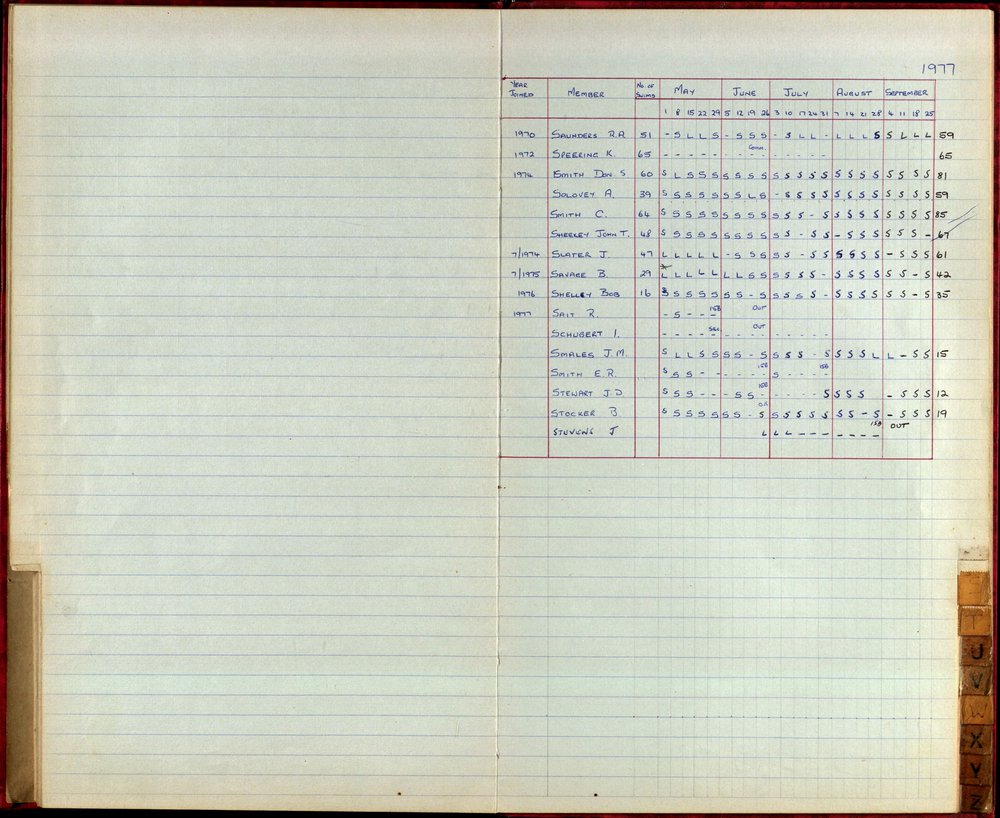 1977
YEAR JOINED MEMBER NO. OF SWIMS MAY JUNE JULY AUGUST SEPTEMBER
1 8 15 22 29 5 12 19 26 3 10 17 24 31 7 14 21 28 4 11 18 25
1970 SAUNDERS R.A. 51 - S L L S - S S S - S L L - L L L S S L L L 59
Comm.
1972 SPEERING K. 65 - - - - - - - - - - - - - - 65
1974 SMITH DON. S 60 S L S S S S S S S S S S S S S S S S S S S S 81
SOLOVEY A. 39 S S S S S S S L S - S S S S S S S S S S S S 59
SMITH C. 64 S S S S S S S S S S S S - S S S S S S S S S 85
SHEEKEY JOHN T. 48 S S S S S S S S S S S - S S - S S S S S S - 67
7/1974 SLATER J 47 L L L L L - S S S S S - S S S S S S - S S S 61
7/1975 SAVAGE B. 29 L L L L L L L S S S S S S - S S S S S S - S 42
1976 SHELLEY BOB 16 S S S S S S S - S S S S S - S S S S S S - S 35
15B OUT
1977 SAIT R. - S - - -
SEC. OUT
SCHUBERT I. - - - - - - - - - - - - - -
SMALES J.M. S L L S S S S - S S S S - S S S S L L - S S 15
15B 15B
SMITH E.R. S S S - - - - - - S - - - -
15B
STEWART J.D. S S S - - - S S - - - - - S S S S S - S S S 12
O.K.
STOCKER B. S S S S S S S - S S S S S S S S - S - S S S 19
15B OUT
STUVENS J L L L - - - - - - -
E
T
U
V
W
X
Y
Z